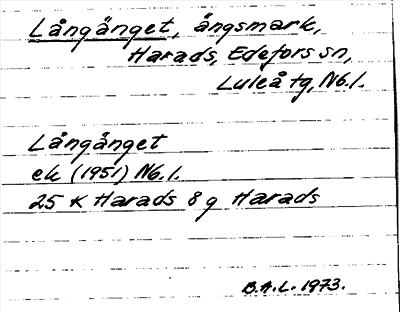 Långänget, ängsmark,
Harads, Edefors sn,
Luleå tg, Nb.l.
Långänget
ek (1951) Nb.l.
25 K Harads 8 g Harads
B.A.L. 1973.